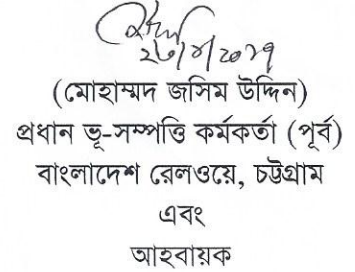 (মোহাম্মদ জসিম উদ্দিন)
প্রধান ভূ-সম্পত্তি কর্মকর্তা (পূর্ব)
বাংলাদেশ রেলওয়ে, চট্টগ্রাম
এবং
আহবায়ক